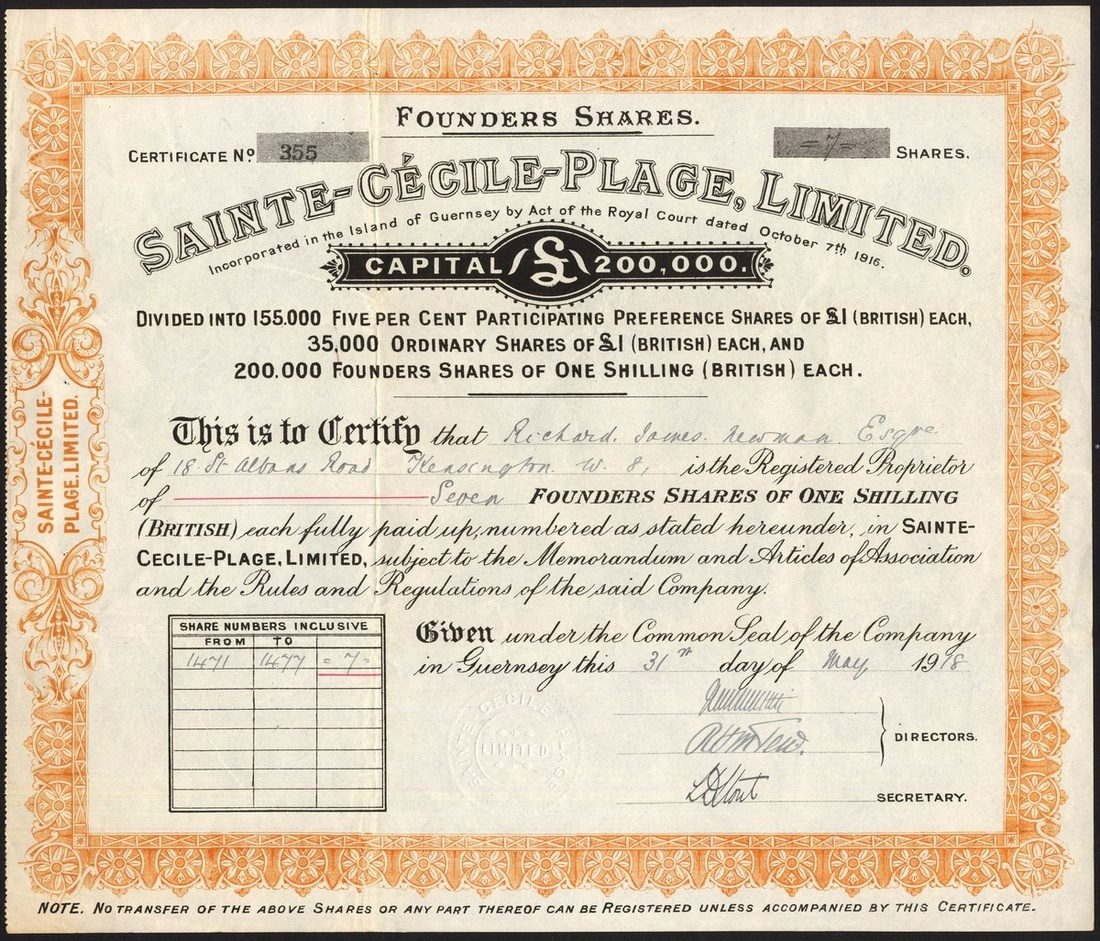 FOUNDERS SHARES.
CERTIFICATE No 355
= 7 = SHARES.
SAINTE-CÉCILE-PLAGE, LIMITED.
Incorporated in the Island of Guernsey by Act of the Royal Court dated October 7th 1916.
CAPITAL £ 200,000.
DIVIDED INTO 155.000 FIVE PER CENT PARTICIPATING PREFERENCE SHARES OF £1 (BRITISH) EACH,
35,000 ORDINARY SHARES OF £1 (BRITISH) EACH, AND
200.000 FOUNDERS SHARES OF ONE SHILLING (BRITISH) EACH.
This is to Certify that Richard. James. Newman. Esqre
of 18. St Albans Road Kensington W. 8, is the Registered Proprietor
of Seven FOUNDERS SHARES OF ONE SHILLING
(BRITISH) each fully paid up, numbered as stated hereunder, in SAINTE-
CECILE-PLAGE, LIMITED, subject to the Memorandum and Articles of Association
and the Rules and Regulations of the said Company.
SHARE NUMBERS INCLUSIVE
FROM TO
1471 1477 = 7 =
Given under the Common Seal of the Company
in Guernsey this 31st day of May 1918
DIRECTORS.
SECRETARY.
SAINTE CECILE PLAGE
LIMITED
SAINTE-CÉCILE-
PLAGE, LIMITED.
NOTE. NO TRANSFER OF THE ABOVE SHARES OR ANY PART THEREOF CAN BE REGISTERED UNLESS ACCOMPANIED BY THIS CERTIFICATE.